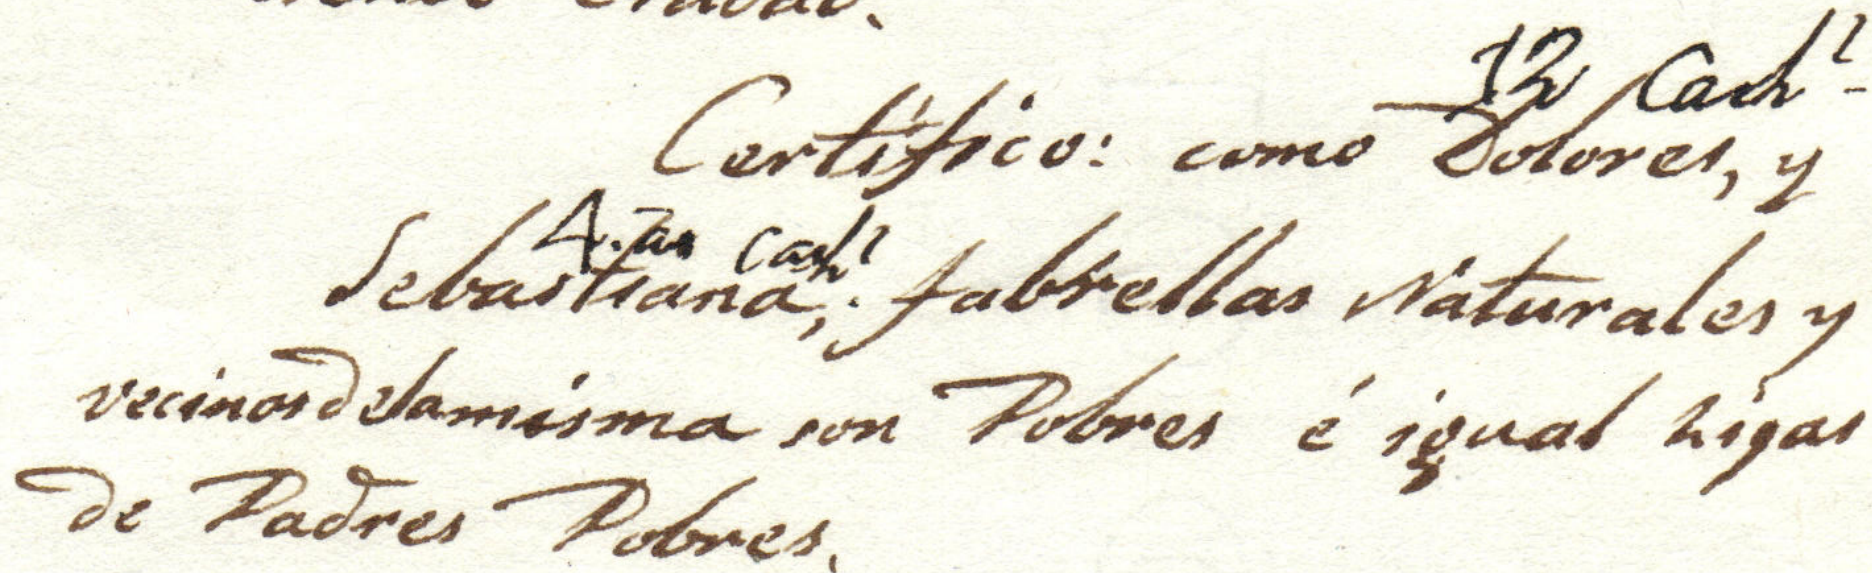 12 Cash¹
Certifico: como Dolores, y
4. as Cash¹
Sebastiana, fabrellas Naturales y
vecinos de la misma son Pobres é igual higas
de Padres Pobres.